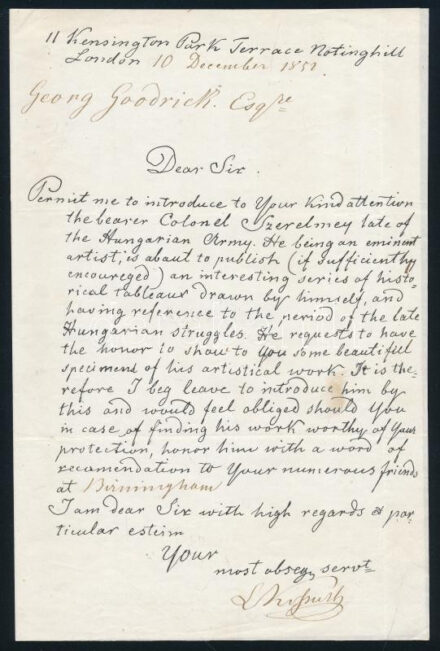 11 Kensington Park Terrace Notinghill
London 10 December 1851.
Georg Goodrick. Esqre
Dear Sir.
Permit me to introduce to Your Kind attention
the bearer Colonel Szerelmey late of
the Hungarian Army. He being an eminent
artist, is abaut to publish (if sufficienthy
encoureged) an interesting series of histo-
rical tableaus drawn by himself, and
having reference to the period of the late
Hungarian struggles. He requests to have
the honor to show to You some beautiful
specimens of his artistical work. It is the-
refore I beg leave to introduce him by
this and would feel obliged should You
in case of finding his work worthy of Your
protection, honor him with a word of
recomendation to Your numerous friends
at Birmingham
I am dear Sir with high regards & par
ticular esteim
Your
most obseq, servt
L Kossuth